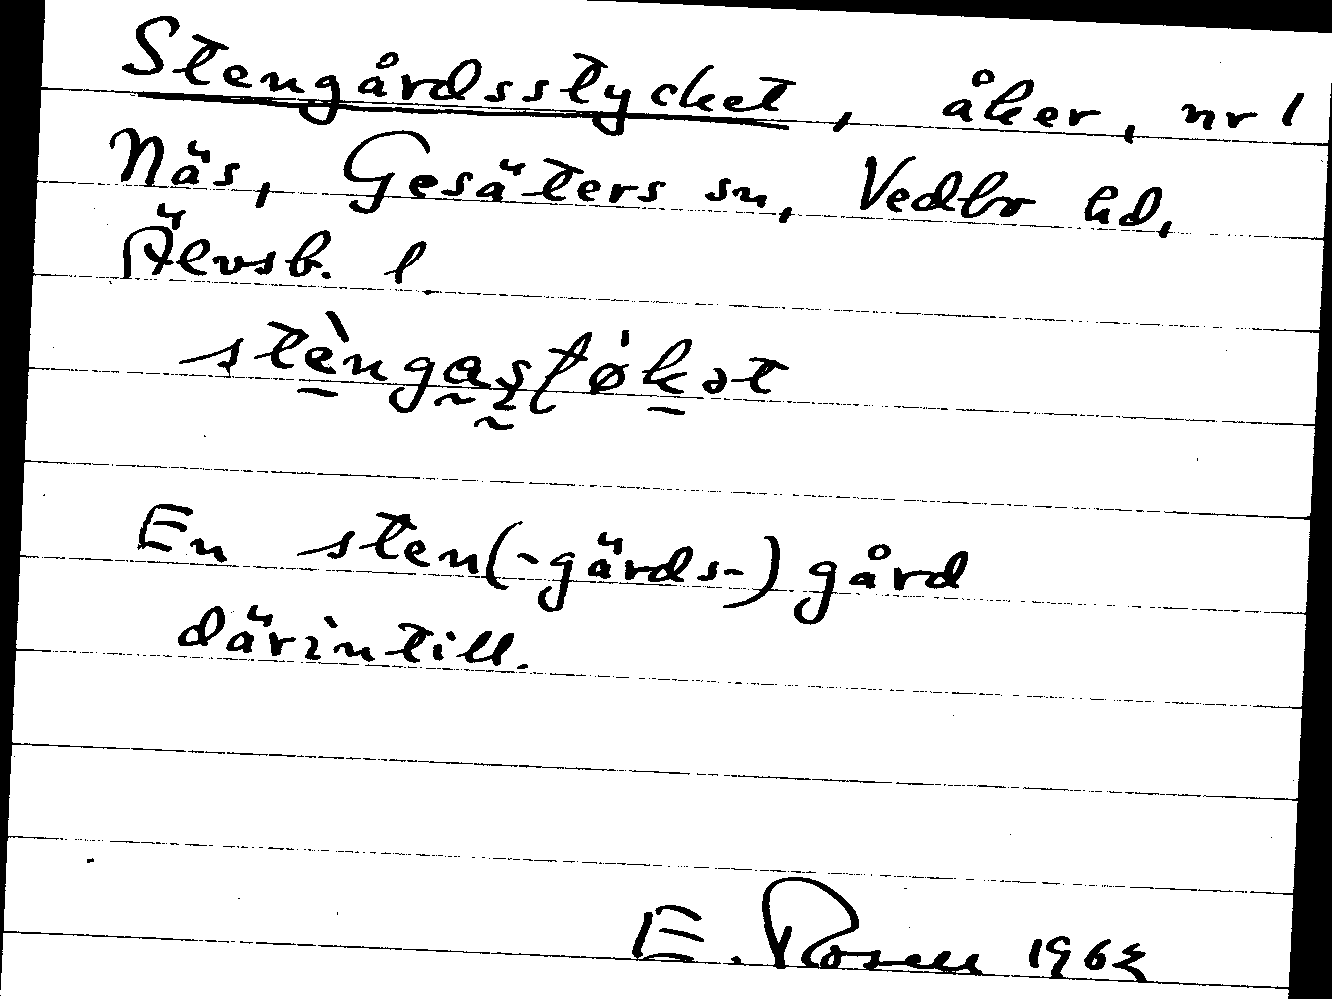 Stengårdsstycket, åker, nr 1
Näs, Gesäters sn, Vedbo hd,
Älvsb. l.
En sten(-gärds-)gård
därintill.
E. Rosell 196